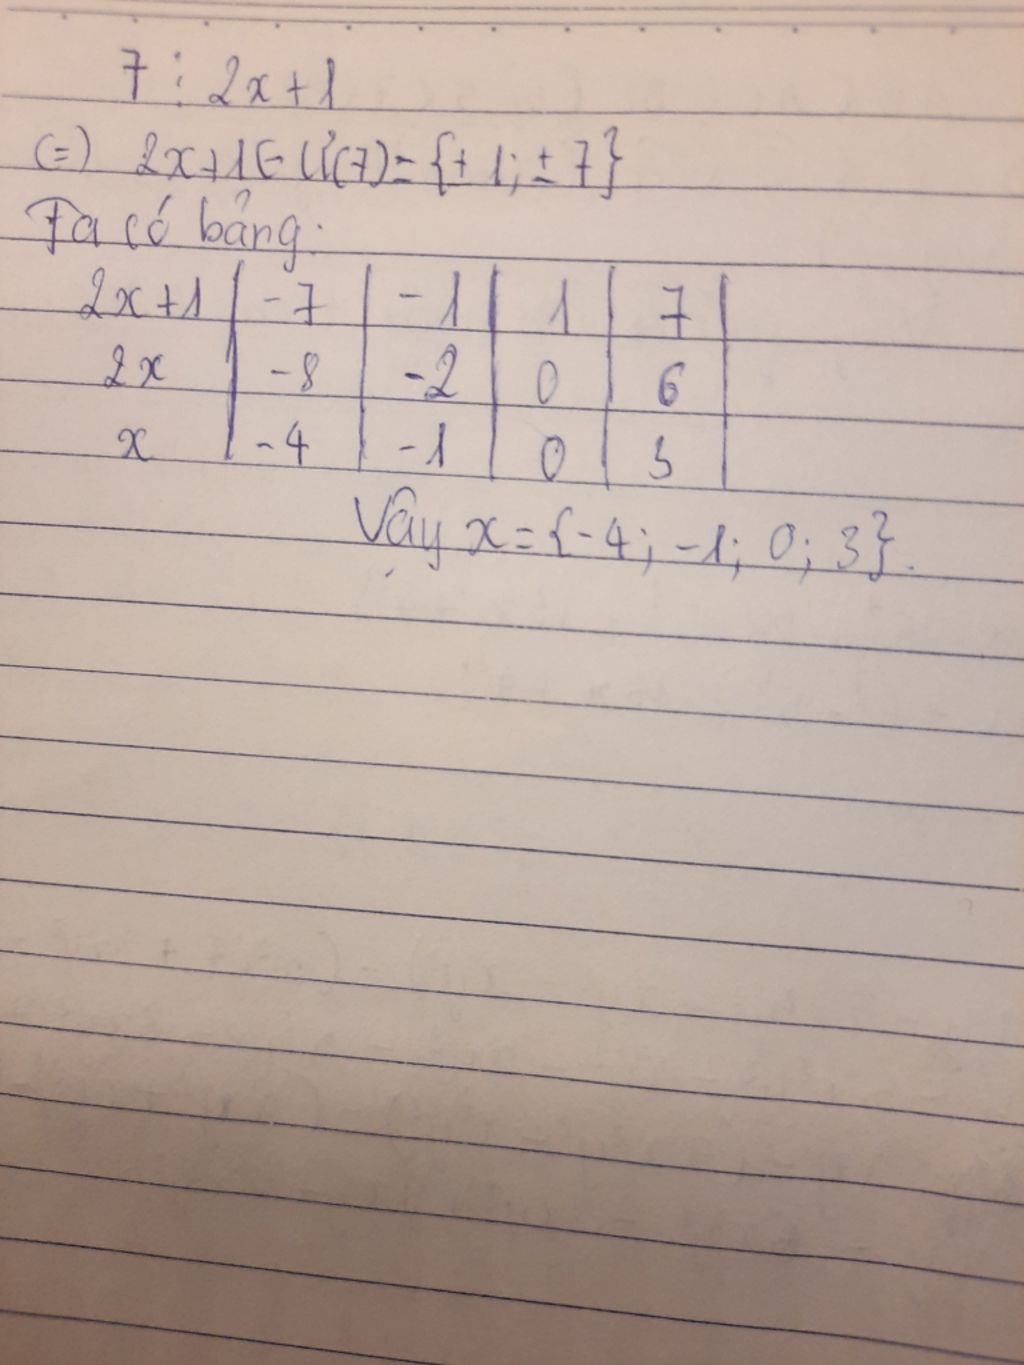 7 ⋮ 2x+1
(=) 2x+1 ∈ Ư(7)={±1; ±7}
Ta có bảng:
2x+1 | -7 | -1 | 1 | 7 |
2x | -8 | -2 | 0 | 6
x | -4 | -1 | 0 | 3
Vậy x={-4; -1; 0; 3}.